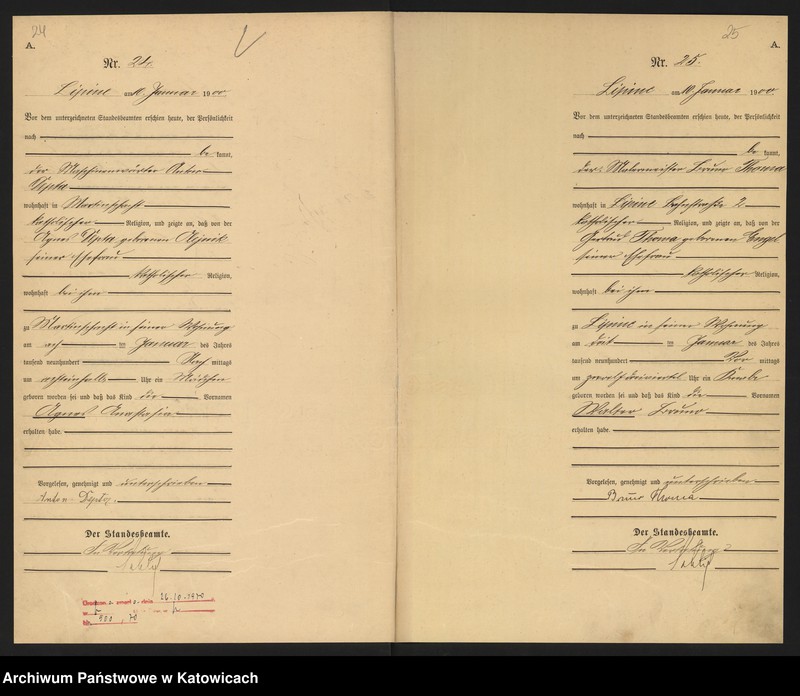 24
A.
Nr. 24.
Lipine am 10. Januar 1900
Vor dem unterzeichneten Standesbeamten erschien heute, der Persönlichkeit
nach
be kannt,
der Maschinenwärter Anton
wohnhaft in Martinschacht
katholischer Religion, und zeigte an, daß von der
Agnes geborenen
seiner Ehefrau
katholischer Religion,
wohnhaft bei ihm
zu Martinschacht in seiner Wohnung
am Januar des Jahres
tausend neunhundert Nach mittags
um Uhr ein Mädchen
geboren worden sei und daß das Kind die Vornamen
Agnes Anastasia
erhalten habe.
Vorgelesen, genehmigt und unterschrieben
Anton
Der Standesbeamte.
In Vertretung
26.10.1970
25
A.
Nr. 25.
Lipine am 10. Januar 1900
Vor dem unterzeichneten Standesbeamten erschien heute, der Persönlichkeit
nach
be kannt,
der Malermeister Bruno Thoma
wohnhaft in Lipine Bahnstraße 2
katholischer Religion, und zeigte an, daß von der
Gertrud Thoma geborenen Engel
seiner Ehefrau
katholischer Religion,
wohnhaft bei ihm
zu Lipine in seiner Wohnung
am drei ten Januar des Jahres
tausend neunhundert Vor mittags
um zwölf dreiviertel Uhr ein Knabe
geboren worden sei und daß das Kind die Vornamen
Walter Bruno
erhalten habe.
Vorgelesen, genehmigt und unterschrieben
Bruno Thoma
Der Standesbeamte.
In Vertretung
Archiwum Państwowe w Katowicach